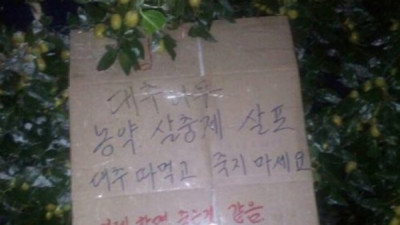 대추나무
농약 살충제 살포
대추 따먹고 죽지 마세요
같음